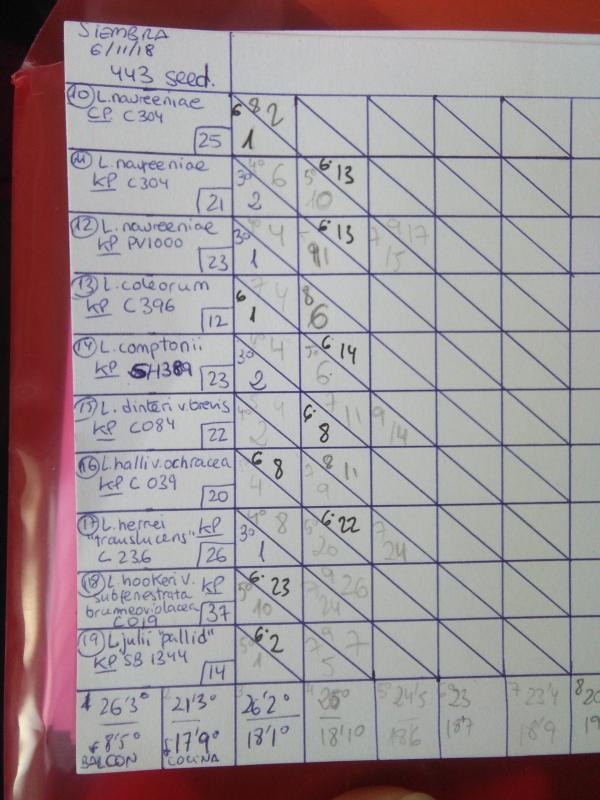 SIEMBRA
6/11/18
443 seed.
10 L. naureeniae
CP C304
25
6 8 2
1
11 L. naureeniae
KP C304
21
3º 4º 6
2
5º 6· 13
10
12 L. naureeniae
KP PV1000
23
3º 4º 4
1
6· 13
11
7 9 17
15
13 L. coleorum
KP C396
12
6 7 4
1
8
6
14 L. comptonii
KP SH389
23
3º 4º 4
2
5º 6· 14
6
15 L. dinteri v. brevis
KP C084
22
4º 5 4
2
6· 7 11
8
9
14
16 L. halli v. ochracea
KP C 039
20
6· 8
4
7 8 11
9
17 L. herrei KP
"translucens"
C 236
26
3º 4º 8
1
5º 6· 22
20
7
24
18 L. hookeri v. KP
subfenestrata
brunneoviolacea
C019
37
5º 6· 23
10
7 9 26
24
19 L. julii "pallid"
KP SB 1344
14
5º 6· 2
1
7 9 7
5
1 26'3º
18'5º
BALCON
2 21'3º
17'9º
COCINA
3 26'2º
18'1º
4
18'1º
5 24'5
18'6
6 23
18'7
7 23'4
18'9
8 20
19